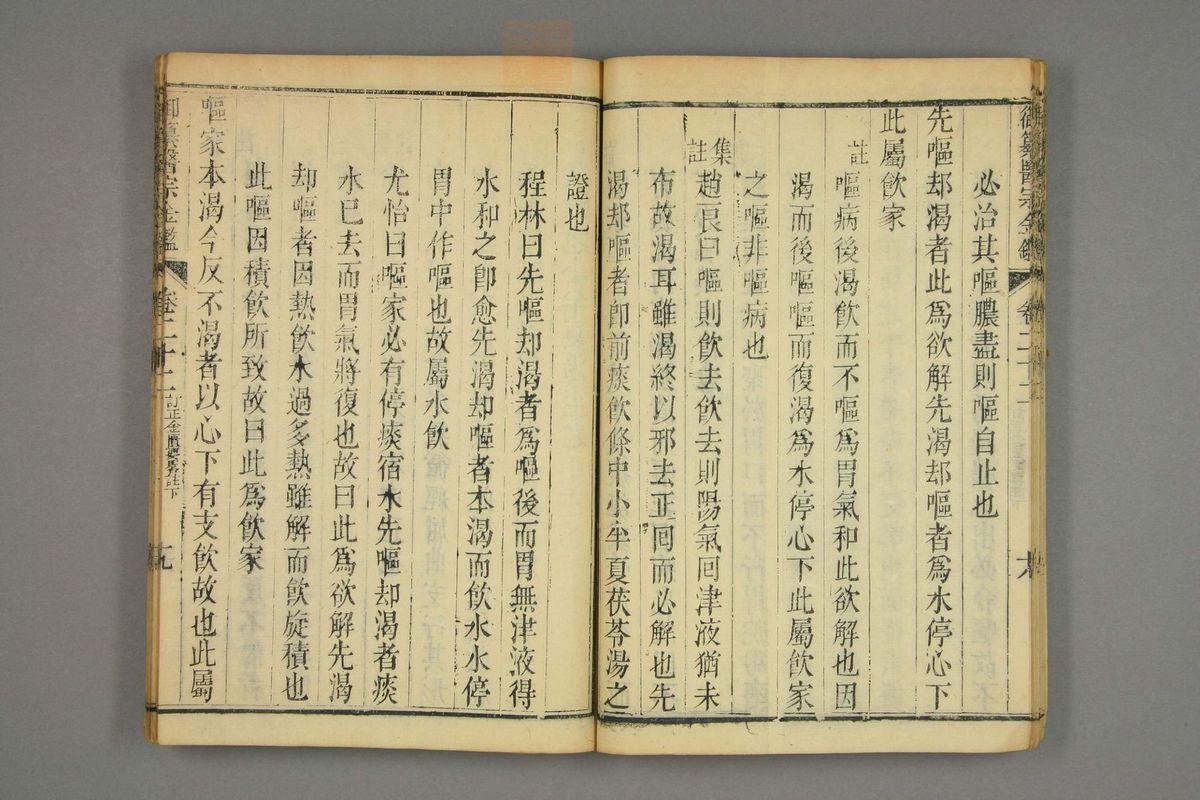 御纂醫宗金鑑 卷二十二
必治其嘔膿盡則嘔自止也
先嘔却渴者此爲欲解先渴却嘔者爲水停心下
此屬飲家
註 嘔病後渴飲而不嘔爲胃氣和此欲解也因
渴而後嘔嘔而復渴爲水停心下此屬飲家
之嘔非嘔病也
集註 趙良曰嘔則飲去飲去則陽氣回津液猶未
布故渴耳雖渴終以邪去正回而必解也先
渴却嘔者即前痰飲條中小半夏茯苓湯之
證也
程林曰先嘔却渴者爲嘔後而胃無津液得
水和之即愈先渴却嘔者本渴而飲水水停
胃中作嘔也故屬水飲
尤怡曰嘔家必有停痰宿水先嘔却渴者痰
水已去而胃氣將復也故曰此爲欲解先渴
却嘔者因熱飲水過多熱雖解而飲旋積也
此嘔因積飲所致故曰此爲飲家
嘔家本渴今反不渴者以心下有支飲故也此屬
御纂醫宗金鑑 卷二十二 訂正金匱要畧註下